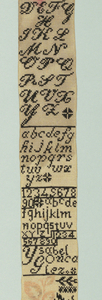 D E F G
H I J K L
M N O
P Q R
S T
U V X
Y Z
abcdefg
hijklm
nopqrs
tuvwx
yz
12345678
90 abcde
fghijklm
nopqrstuv
xyz 1234
567890
Ysabel
Gonca
lez